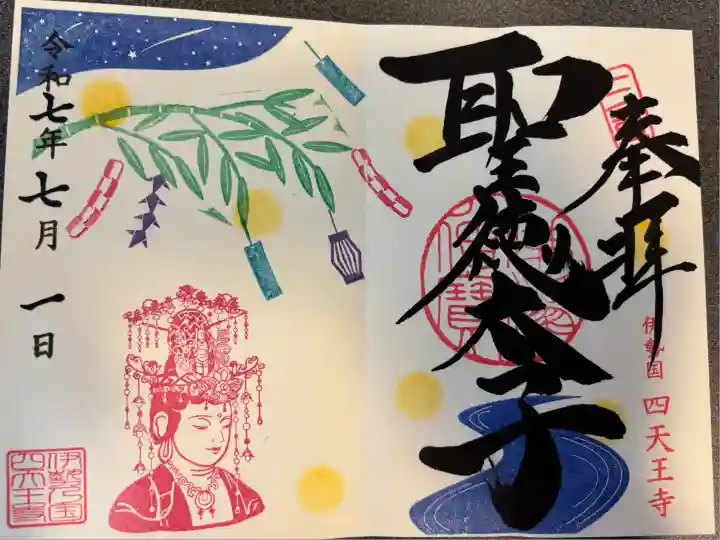 奉拝
聖徳太子
伊勢国 四天王寺
令和七年七月一日
伊勢国
四天王寺